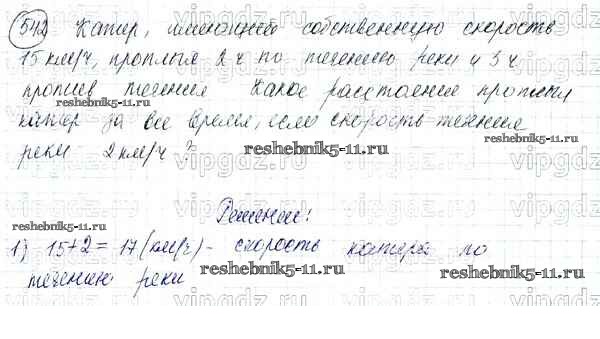 542 Катер, имеющий собственную скорость
15 км/ч, проплыл 2 ч по течению реки и 3 ч
против течения Какое расстояние проплыл
reshebnik5-11.ru
катер за все время, если скорость течения
реки 2 км/ч?
reshebnik5-11.ru
vipgdz.ru
Решение:
reshebnik5-11.ru
1) 15+2=17 (км/ч) - скорость катера по
течению реки
reshebnik5-11.ru